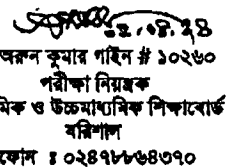 ০২.০৮.২৪
অরুন কুমার গাইন # ১০২৬০
পরীক্ষা নিয়ন্ত্রক
মিক ও উচ্চমাধ্যমিক শিক্ষাবোর্ড
বরিশাল
ফোন : ০২৪৭৮৮৬৪৩৭০